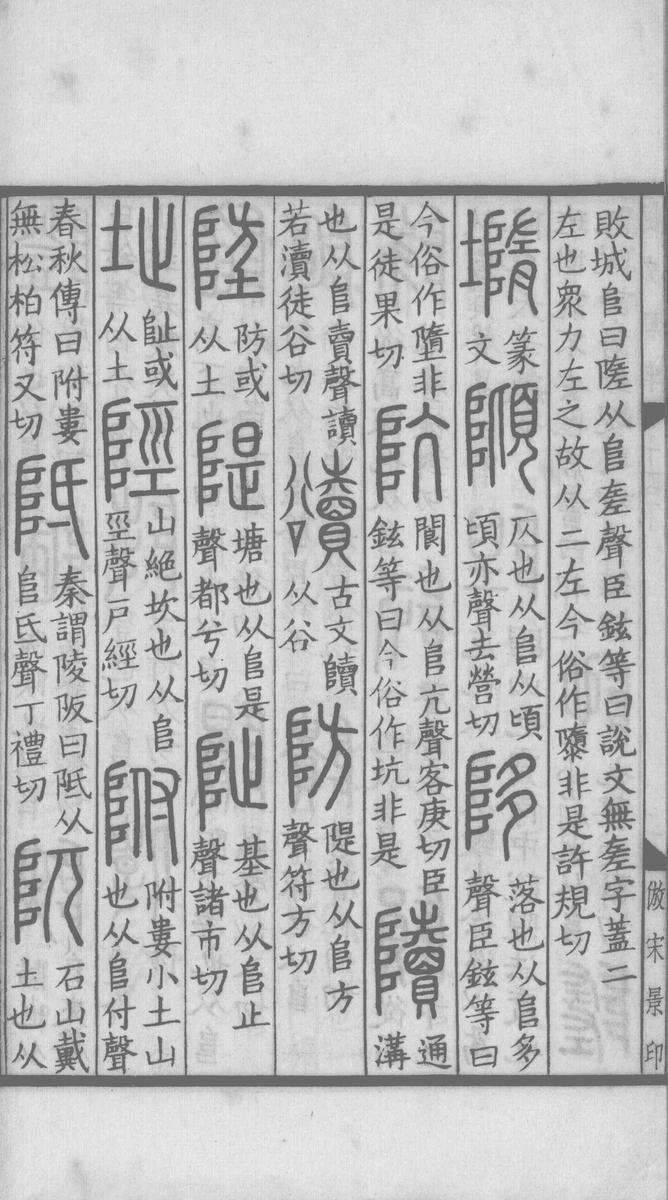 敗城𨸏曰隓从𨸏𢀡聲臣鉉等曰說文無𢀡字蓋二
左也衆力左之故从二左今俗作隳非是許規切
𡐦篆文䧟仄也从𨸏从頃頃亦聲去營切陊落也从𨸏多聲臣鉉等曰
今俗作墮非是徒果切阬閬也从𨸏亢聲客庚切臣鉉等曰今俗作坑非是隫通溝
也从𨸏賣聲讀若瀆徒谷切豄古文隫从谷防隄也从𨸏方聲符方切
埅防或从土隄塘也从𨸏是聲都兮切阯基也从𨸏止聲諸市切
址阯或从土陘山絕坎也从𨸏巠聲戶經切附附婁小土山也从𨸏付聲
春秋傳曰附婁無松柏符又切阺秦謂陵阪曰阺从𨸏氐聲丁禮切阢石山戴土也从
倣宋景印